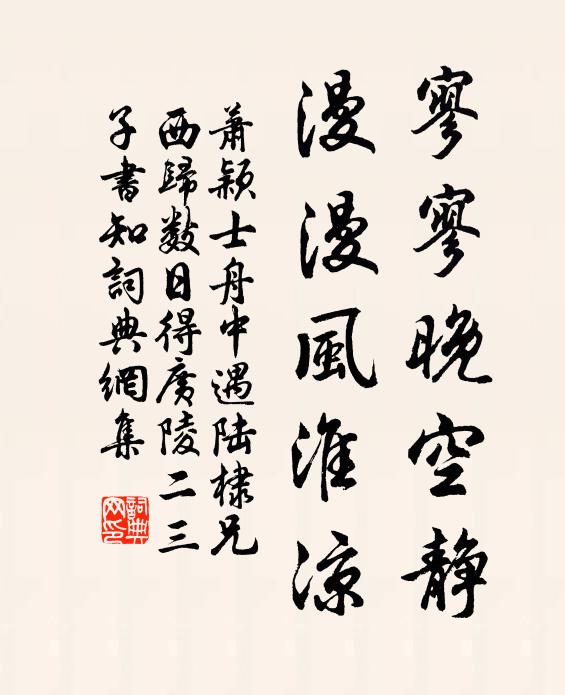 寥寥晚空静
漫漫風淮凉
蕭颖士舟中遇陆棣兄
西歸数日得廣陵二三
子書知詞典網集
詞典网印